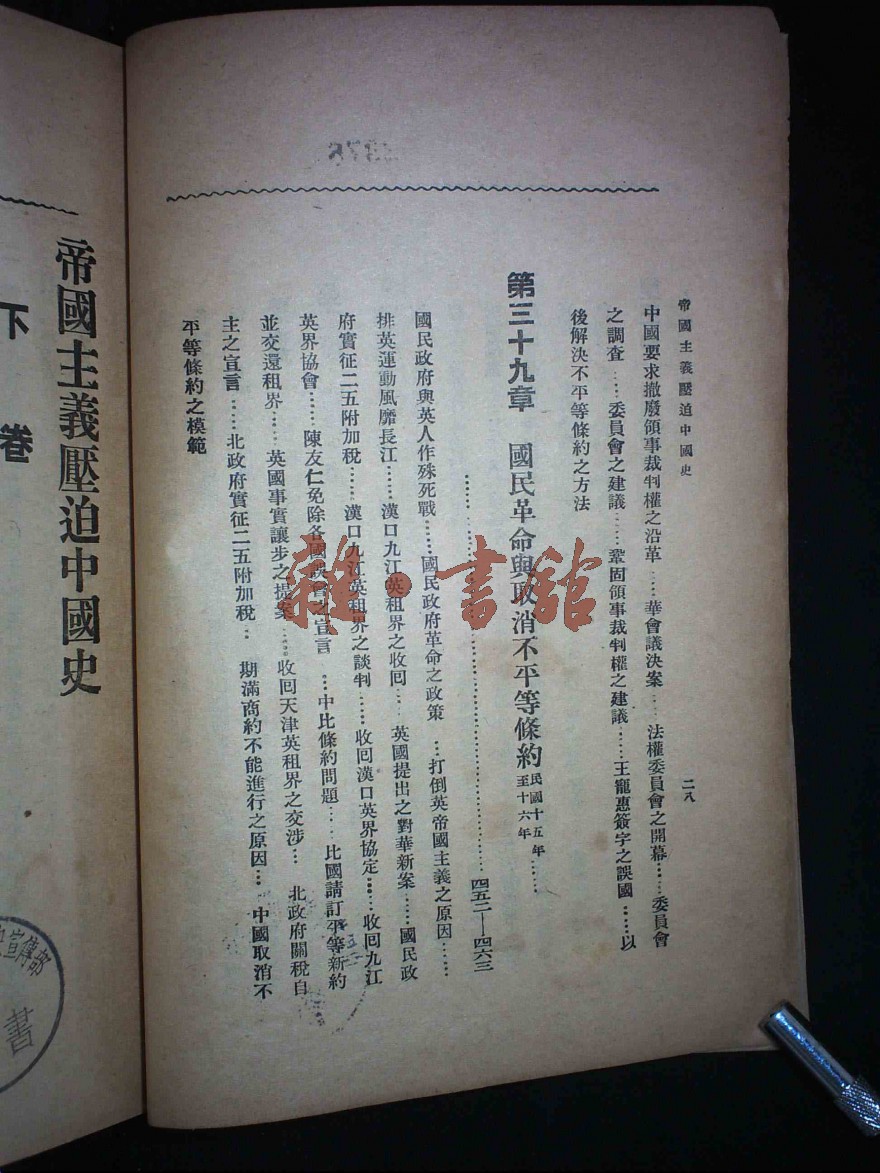 帝國主義壓迫中國史
二八
中國要求撤廢領事裁判權之沿革……華會議決案……法權委員會之開幕……委員會
之調查……委員會之建議……鞏固領事裁判權之建議……王寵惠簽字之誤國……以
後解決不平等條約之方法
第三十九章 國民革命與取消不平等條約 民國十五年至十六年……
……四五二—四六三
國民政府與英人作殊死戰……國民政府革命之政策…打倒英帝國主義之原因……
排英運動風靡長江……漢口九江英租界之收回……英國提出之對華新案……國民政
府實征二五附加稅……漢口九江英租界之談判……收回漢口英界協定……收回九江
英界協會……陳友仁免除各國誤會之宣言…中比條約問題……比國請訂平等新約
並交還租界……英國事實讓步之提案……收回天津英租界之交涉…北政府關稅自
主之宣言……北政府實征二五附加稅…期滿商約不能進行之原因…中國取消不
平等條約之模範
帝國主義壓迫中國史
下卷
宣傳部
書
雜·書館